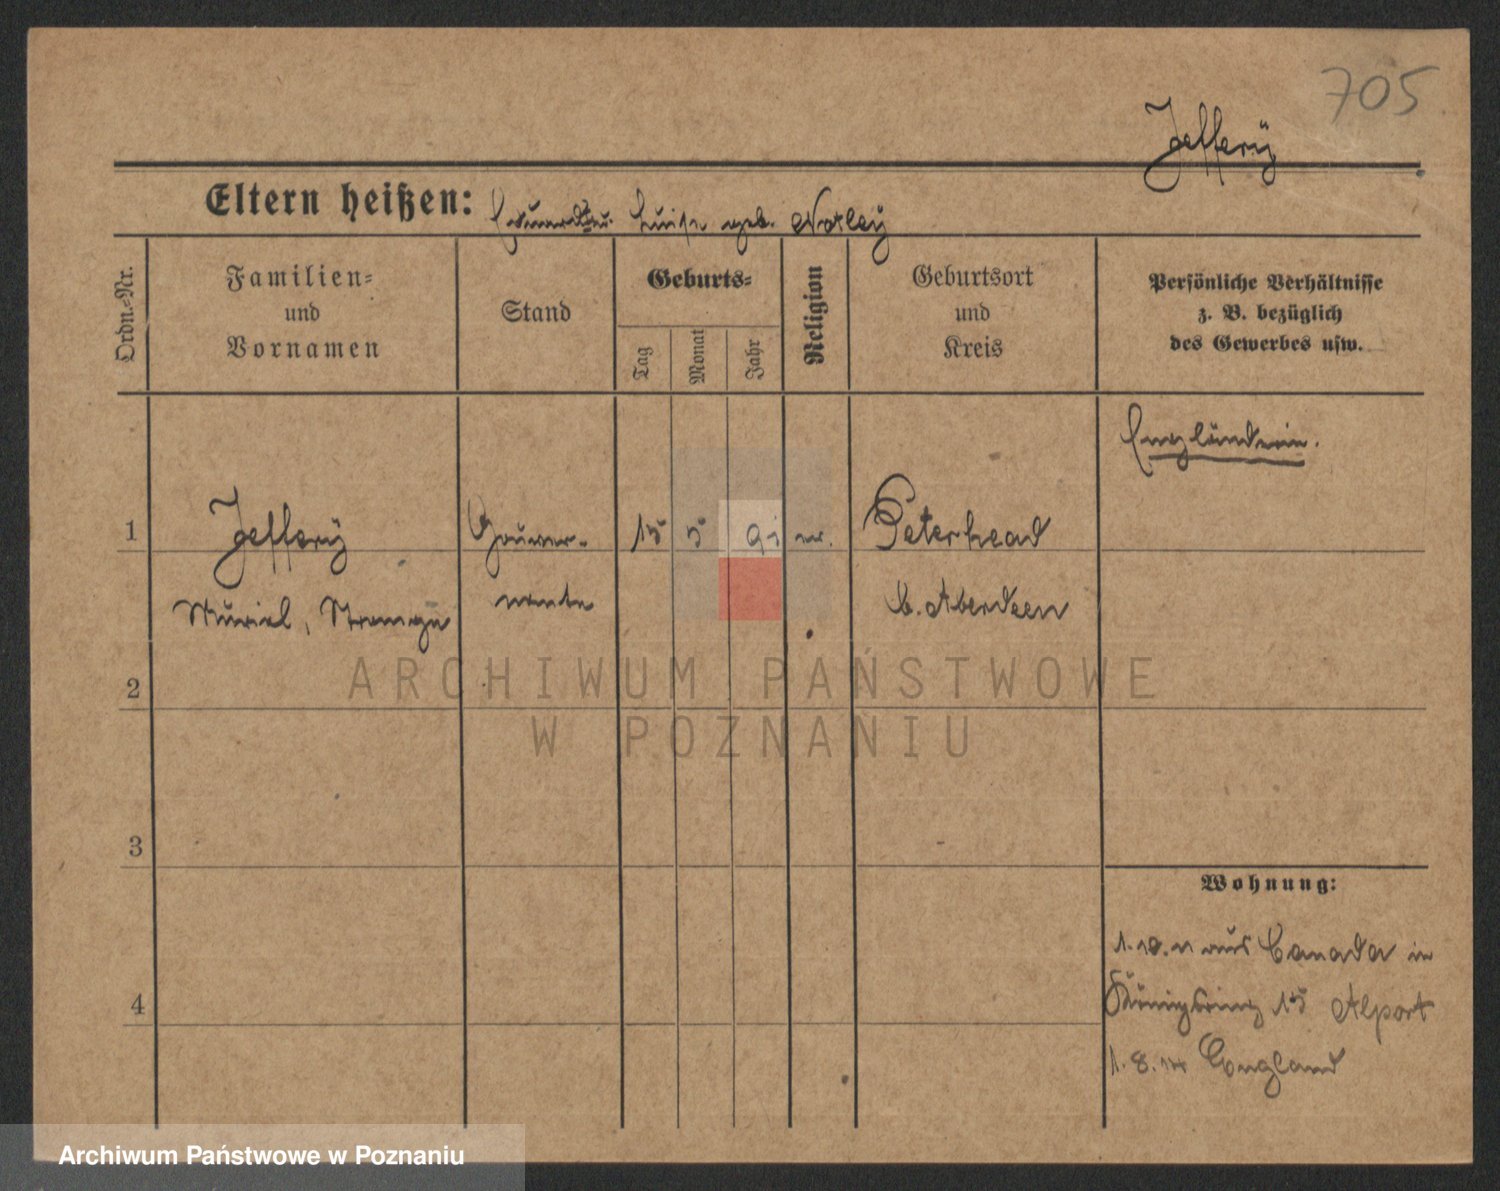 705
Jefferÿ
Eltern heißen: Luise geb. Notley
Ordn.-Nr.
Familien-
und
Vornamen
Stand
Geburts-
Tag
Monat
Jahr
Religion
Geburtsort
und
Kreis
Persönliche Verhältnisse
z. B. bezüglich
des Gewerbes usw.
Engländerin.
1 Jefferÿ Gouver- 15 5 91 ev. Peterhead
Muriel, nante b. Aberdeen
2
ARCHIWUM PAŃSTWOWE
W POZNANIU
3
Wohnung:
1.10.11 aus Canada in
4
Königsring 15 Alport
1.8.14 England
Archiwum Państwowe w Poznaniu